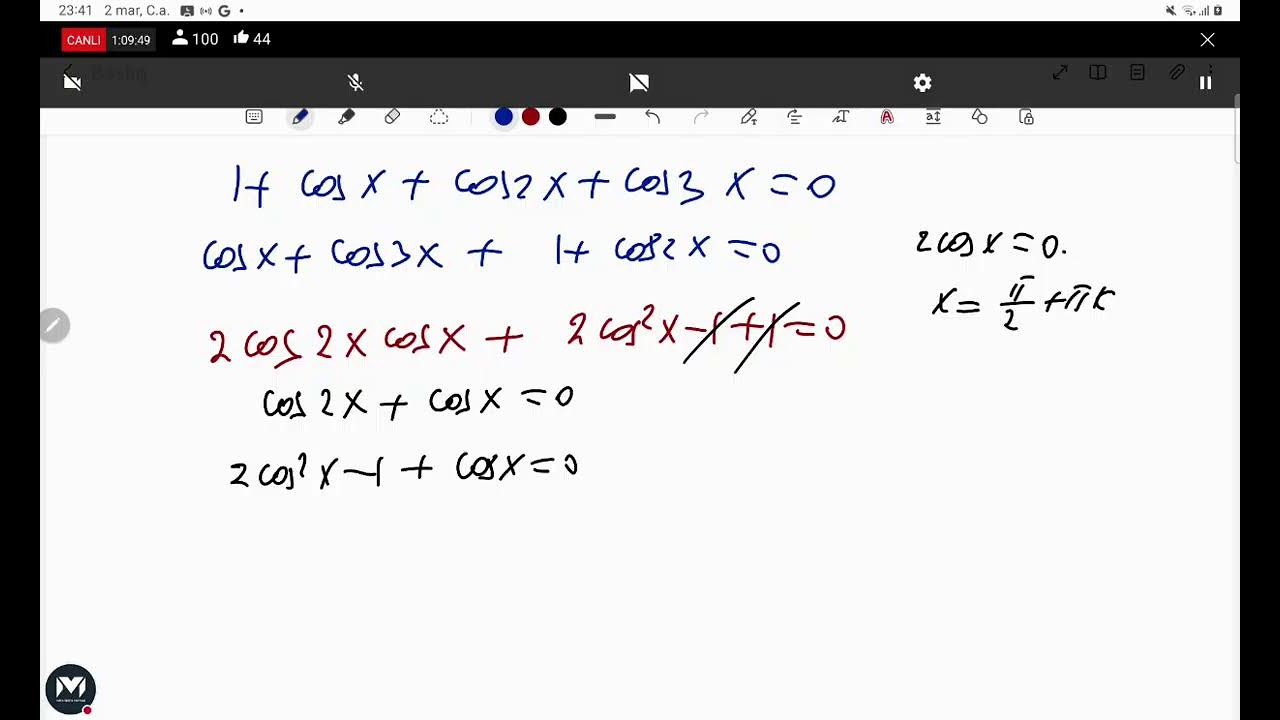 23:41 2 mar, C.a.
CANLI 1:09:49 100 44
1+ cosx + cos2x + cos3x = 0
cosx + cos3x + 1+ cos2x = 0
2cos2x cosx + 2cos²x - 1 + 1 = 0
cos2x + cosx = 0
2cos²x - 1 + cosx = 0
2cosx = 0.
x = π/2 + πk